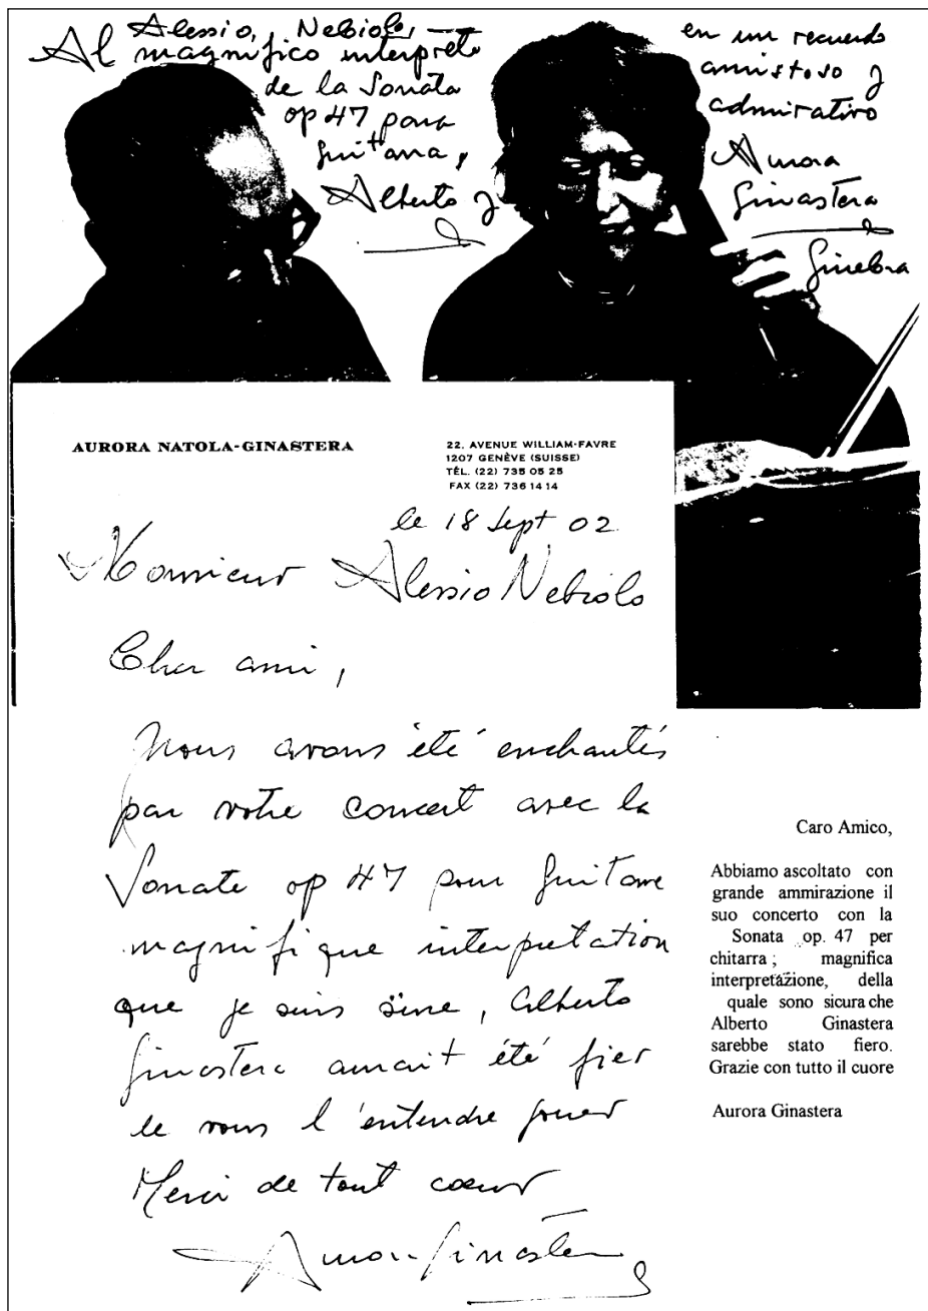 Al Alessio, Nebiolo,
magnifico interprete
de la Sonata
op 47 para
guitarra,
Alberto y
en un recuerdo
amistoso y
admirativo
Aurora
Ginastera
Ginebra
AURORA NATOLA-GINASTERA
22, AVENUE WILLIAM-FAVRE
1207 GENÈVE (SUISSE)
TÉL. (22) 735 05 25
FAX (22) 736 14 14
le 18 Sept 02
Monsieur Alessio Nebiolo
Cher ami,
Nous avons été enchantés
par votre concert avec la
Sonate op 47 pour guitare
magnifique interpretation
que je suis sûre, Alberto
Ginastera aurait été fier
de vous l'entendre jouer
Merci de tout cœur
Aurora Ginastera
Caro Amico,
Abbiamo ascoltato con
grande ammirazione il
suo concerto con la
Sonata op. 47 per
chitarra ; magnifica
interpretazione, della
quale sono sicura che
Alberto Ginastera
sarebbe stato fiero.
Grazie con tutto il cuore
Aurora Ginastera